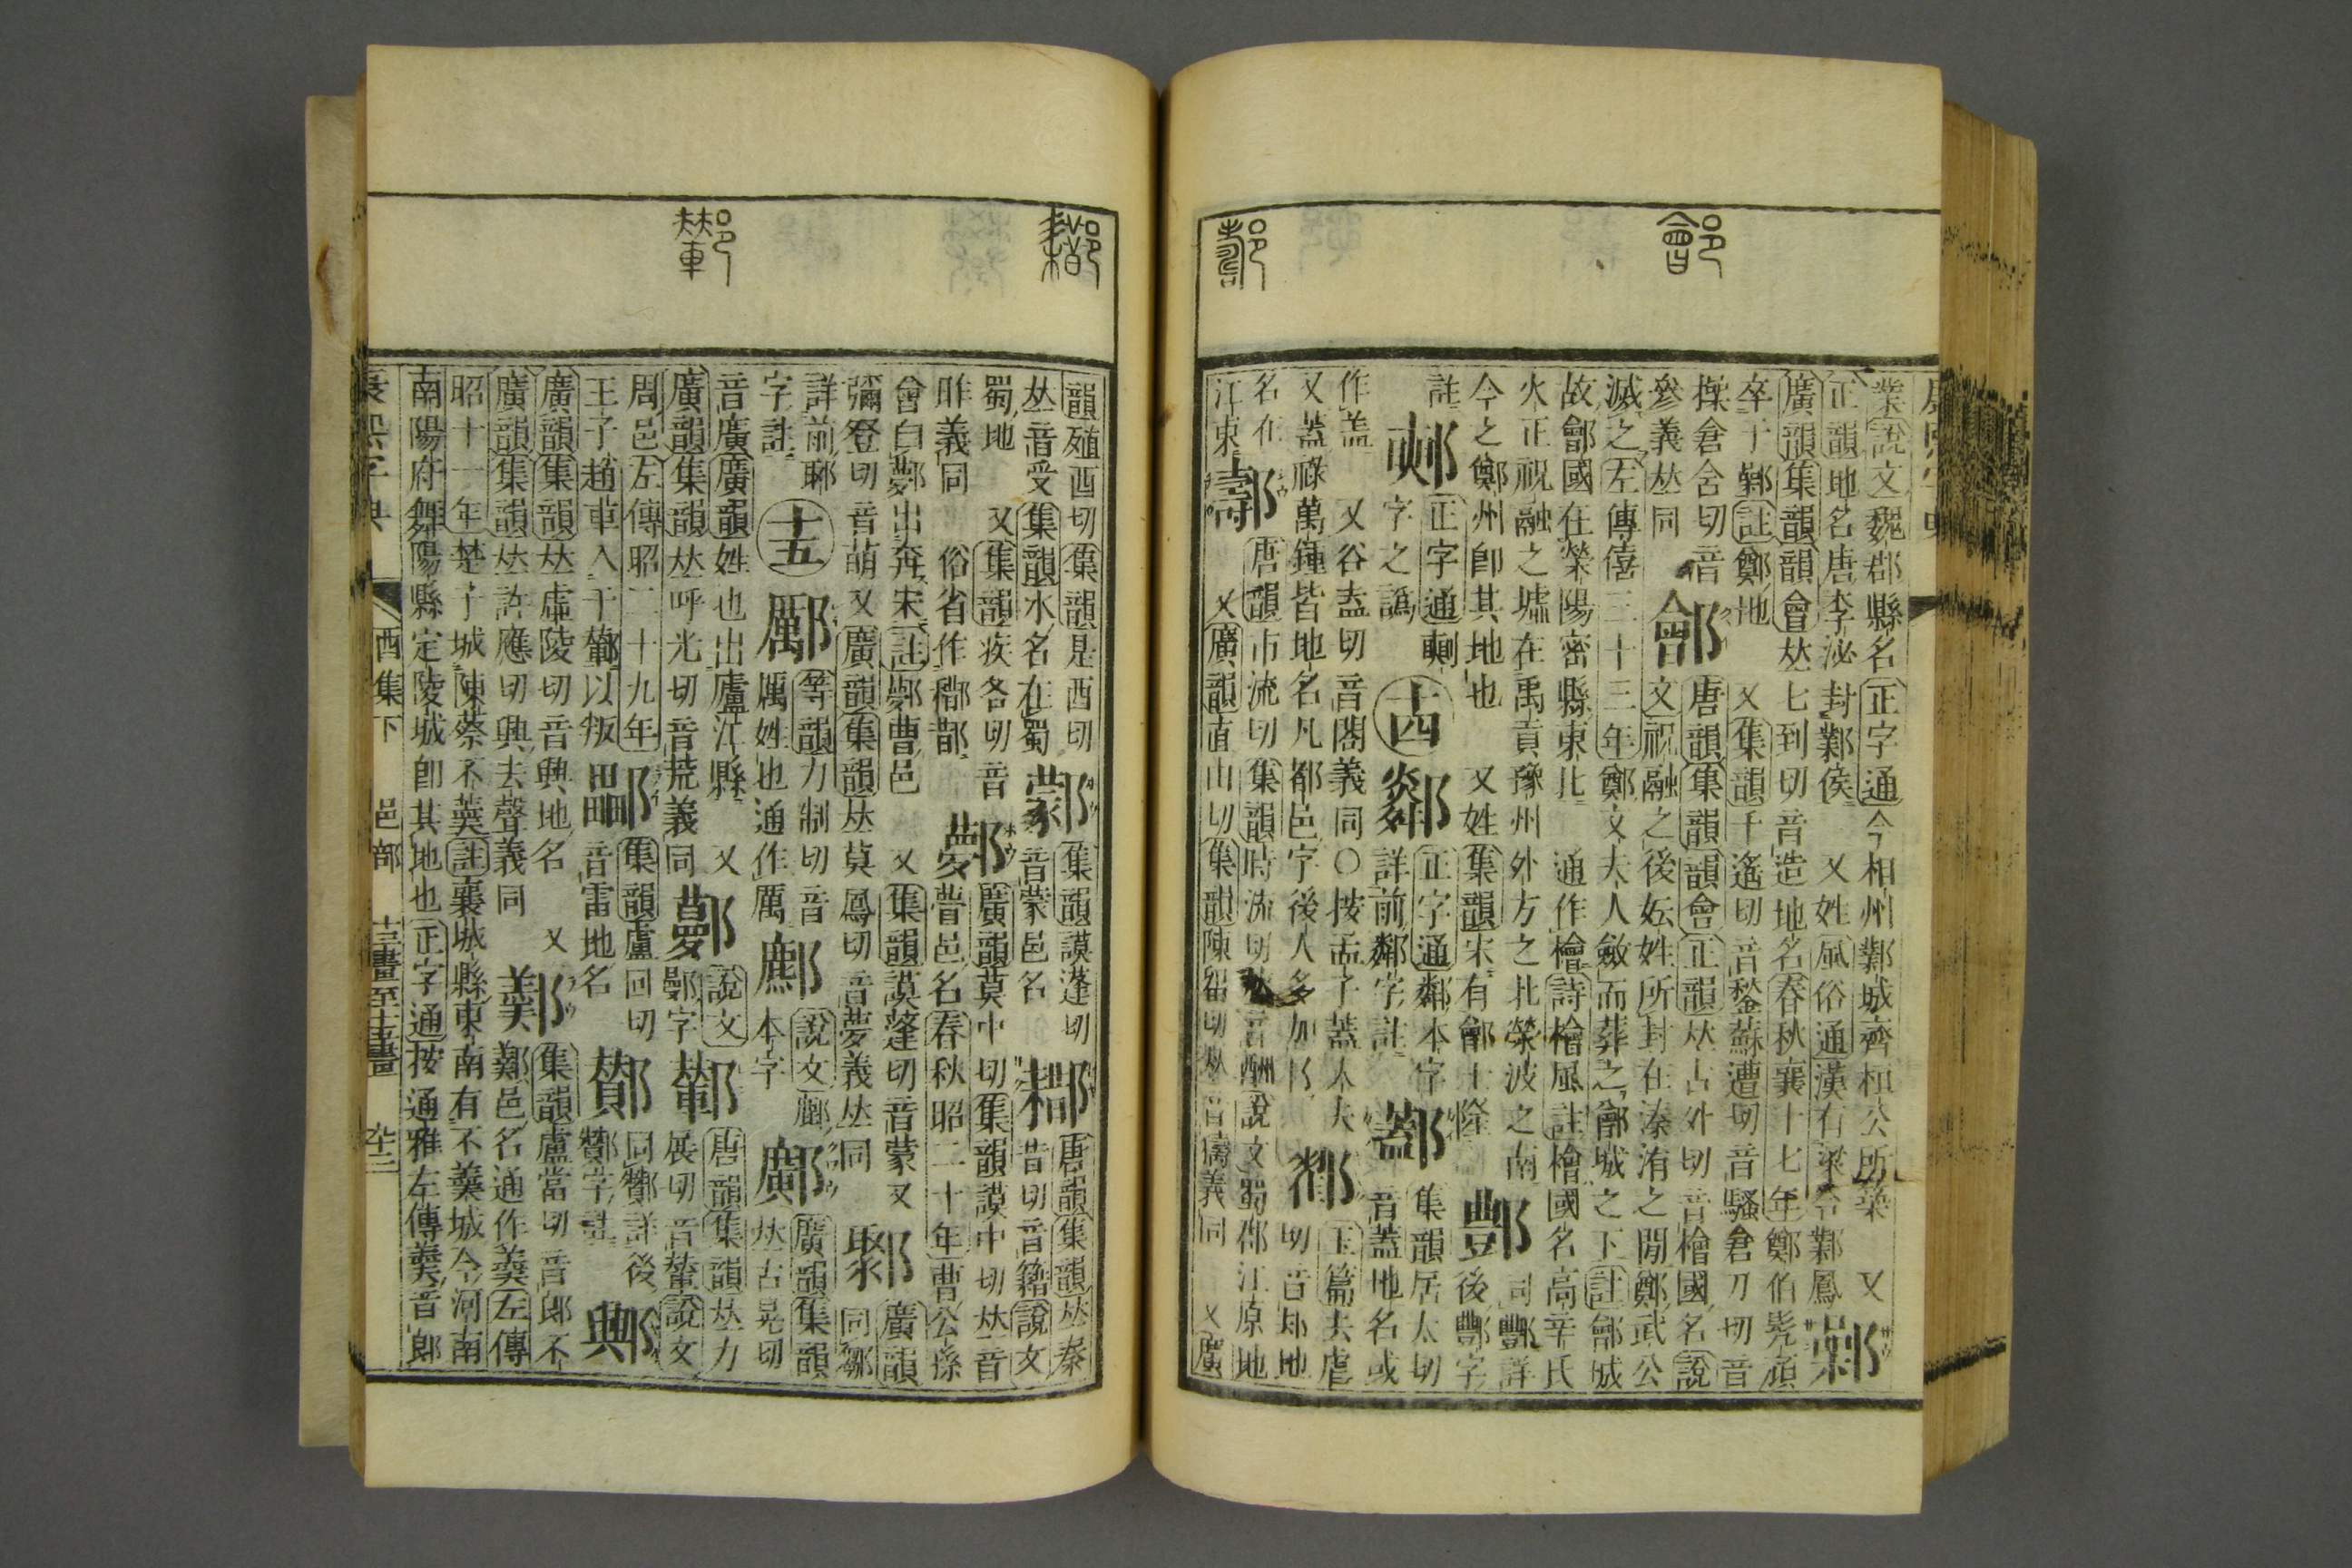 鄶
業說文魏郡縣名正字通今相州鄴城齊桓公所築又
正韻地名唐李泌封鄴侯又姓風俗通漢有梁令鄴鳳
廣韻集韻韻會𠀤七到切音造地名春秋襄十七年鄭伯髠頑
卒于鄵註鄭地又集韻千遙切音鍫蘇遭切音騷倉刀切音
操倉含切音
參義𠀤同鄶
唐韻集韻韻會正韻𠀤古外切音檜國名說
文祝融之後妘姓所封在溱洧之閒鄭武公
滅之左傳僖三十三年鄭文夫人斂而葬之鄶城之下註鄶城
故鄶國在滎陽密縣東北通作檜詩檜風註檜國名高辛氏
火正祝融之墟在禹貢豫州外方之北滎波之南
今之鄭州卽其地也又姓集韻宋有鄶士隆
同酆詳
後酆字
註
正字通
字之譌
十四
正字通鄰本字
詳前鄰字註
集韻居太切
音蓋地名或
作盖又谷盍切音閤義同〇按孟子蓋大夫
又蓋祿萬鍾皆地名凡都邑字後人多加阝
玉篇去虐
切音却地
名在
江東
唐韻市流切集韻時流切𠀤音酬說文蜀郡江原地
又廣韻直由切集韻陳留切𠀤音儔義同又廣
韻殖酉切集韻是酉切
𠀤音受集韻水名在蜀
集韻謨蓬切
音蒙邑名
唐韻集韻𠀤秦
昔切音籍說文
蜀地又集韻疾各切音
昨義同俗省作
廣韻莫中切集韻謨中切𠀤音
瞢邑名春秋昭二十年曹公孫
會自鄸出奔宋註鄸曹邑又集韻謨蓬切音蒙又
彌登切音萌又廣韻集韻𠀤莫鳳切音夢義𠀤同
廣韻
同鄹
詳前郰
字註
十五
等韻力制切音
厲姓也通作厲
說文
本字
廣韻集韻
𠀤古晃切
音廣廣韻姓也出廬江縣又
廣韻集韻𠀤呼光切音荒義同
說文
鄤字
唐韻集韻𠀤力
展切音輦說文
周邑左傳昭二十九年
王子趙車入于鄻以叛
集韻盧回切
音雷地名
同酇詳後
酇字註
廣韻集韻𠀤虛陵切音興地名又
廣韻集韻𠀤許應切興去聲義同
集韻盧當切音郞不
鄭邑名通作羹左傳
昭十一年楚子城陳蔡不羹註襄城縣東南有不羹城今河南
南陽府舞陽縣定陵城卽其地也正字通按通雅左傳羹音郞
康熙字典 酉集下 邑部 十三畫至十五畫 九十三